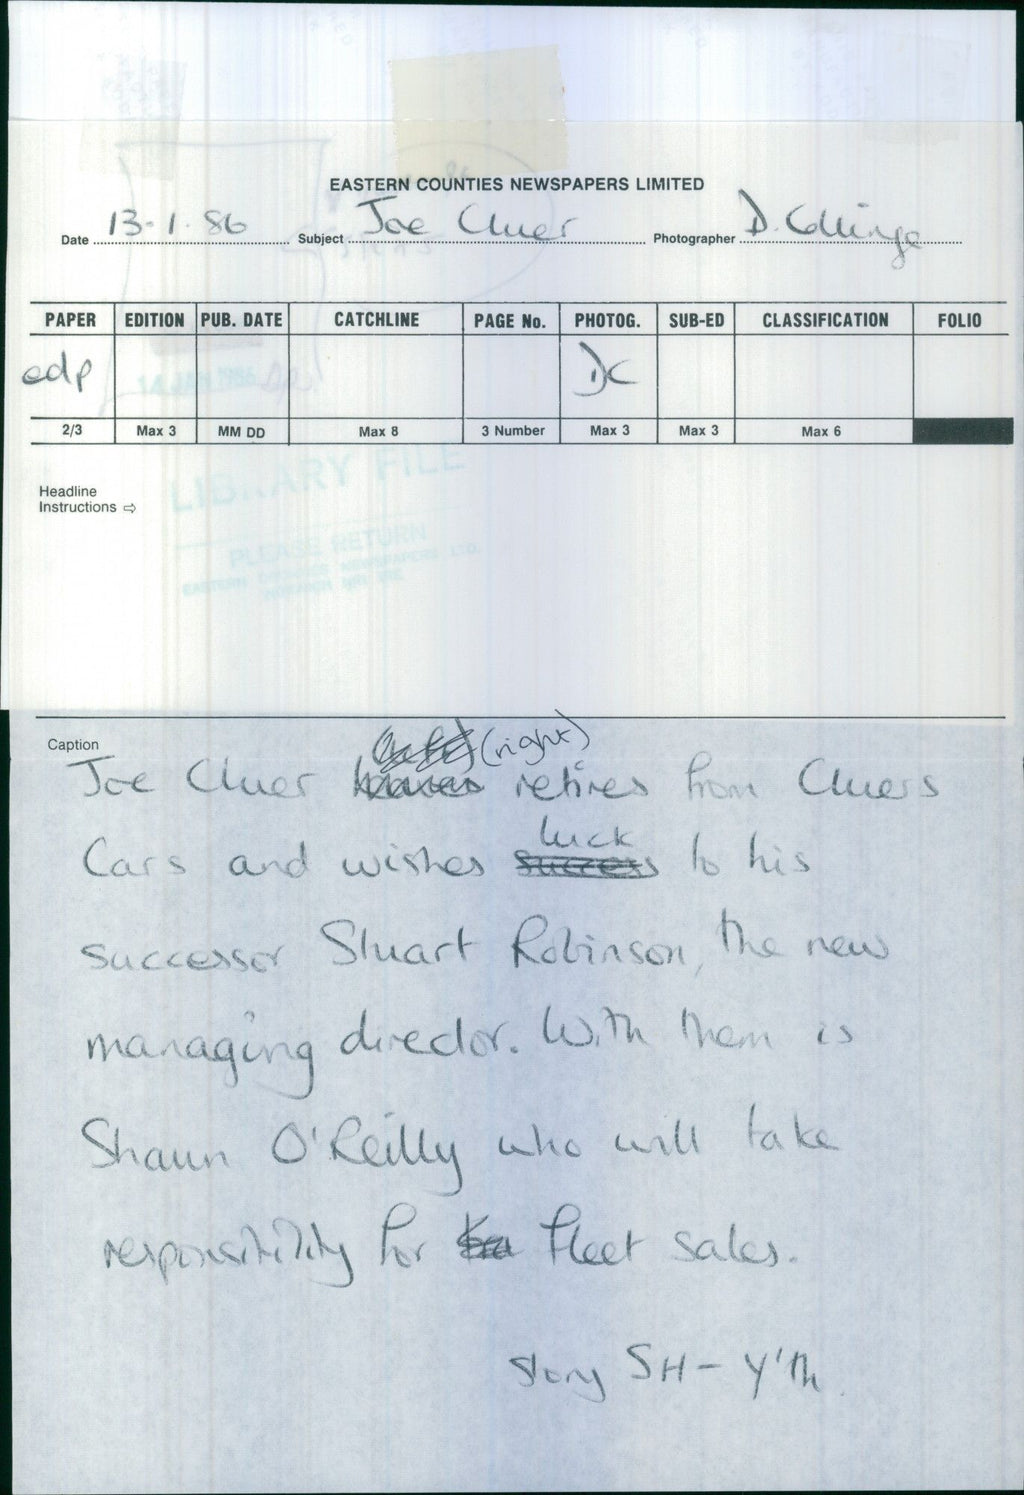 EASTERN COUNTIES NEWSPAPERS LIMITED
Date 13-1-86 Subject Joe Cluer Photographer D. Collinge
PAPER EDITION PUB. DATE CATCHLINE PAGE No. PHOTOG. SUB-ED CLASSIFICATION FOLIO
edp DC
14 JAN 1986
2/3 Max 3 MM DD Max 8 3 Number Max 3 Max 3 Max 6
LIBRARY FILE
Headline
Instructions ⇨
PLEASE RETURN
EASTERN COUNTIES NEWSPAPERS LTD.
Caption
(right)
Joe Cluer retires from Cluers
luck
Cars and wishes success to his
successor Stuart Robinson, the new
managing director. With them is
Shaun O'Reilly who will take
responsibility for fleet sales.
Story SH - Y'th.